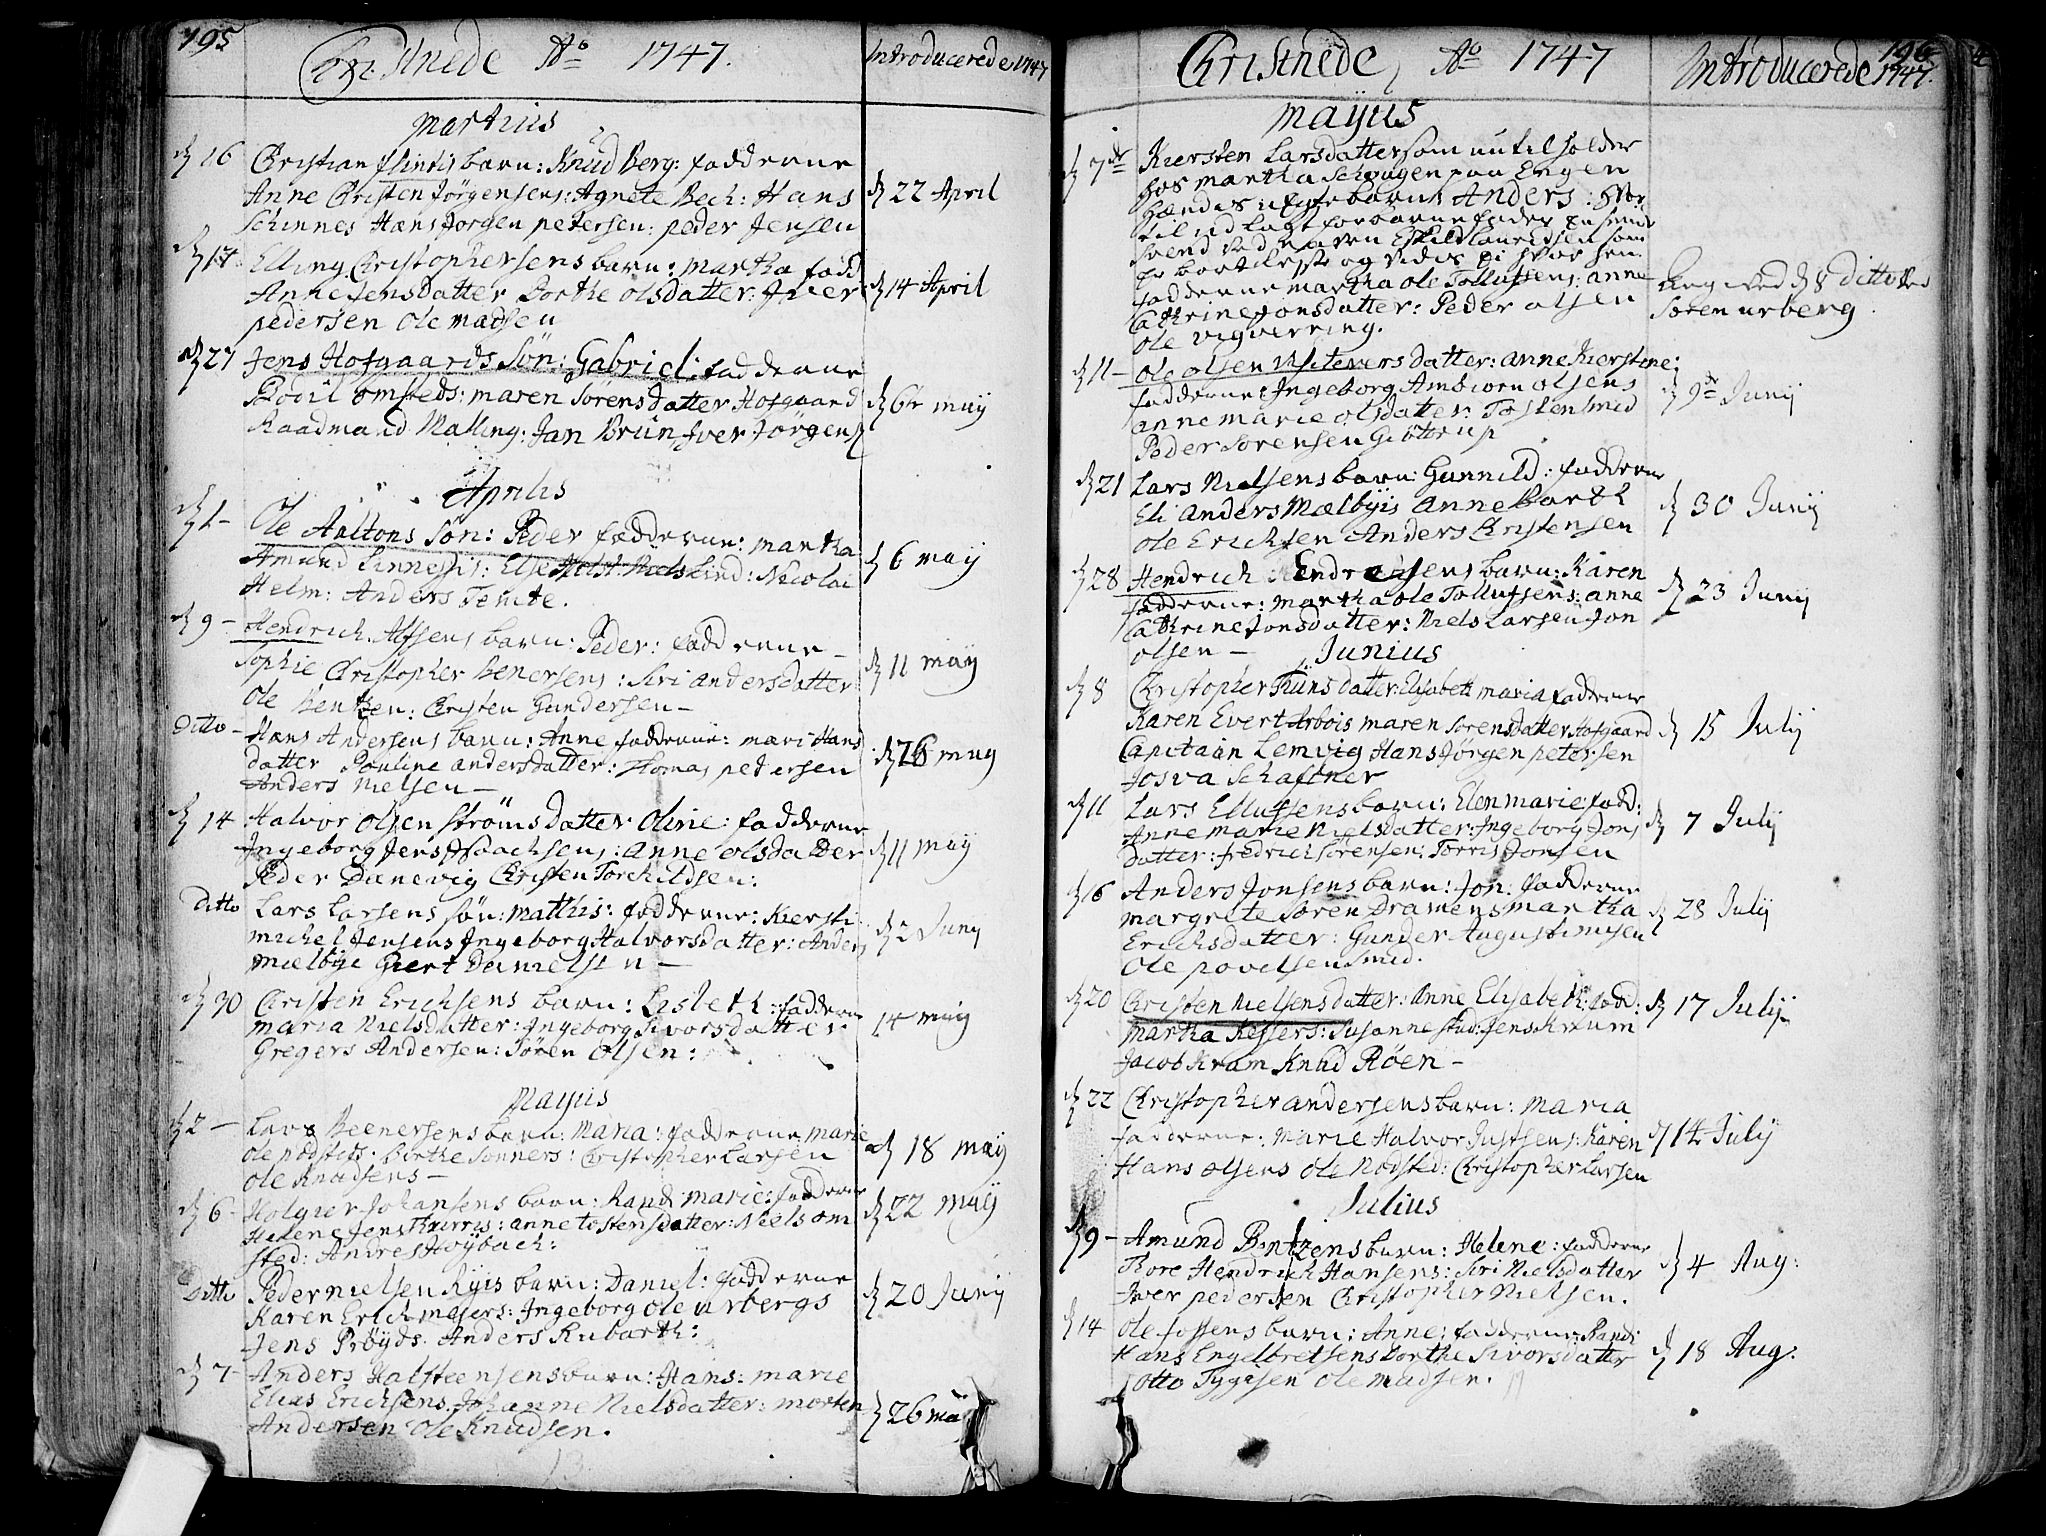 195
Christnede Ao 1747.
Introducerede 1747
Martius
d 16 Christian Flintis barn: Knud Berg: fadderne
Anne Christen Jörgensens: Agnete Bech: Hans
Schinnes Hans Jorgen petersen: peder Jensen
d 22 April
d 17 Elling Christophersens barn: Martha fadd
Anne Jensdatter Dorthe olsdatter: Iver
pedersen Ole Madsen
d 14 April
d 27 Jens Hofgaards Sön: Gabriel: fadderne
Bodil omsteds: maren Sörensdatter Hofgaard
Raadmand Malling: Jan Brun Iver Jörgens
d 6te maij
Aprilis
d 2 - Ole Aaltons Sön: Peder fadderne: Martha
Amund Linnessis: Else Holst: Niels Lind: Nicolai
Helm: Anders Tente.
d 6 maij
d 9 - Hendrich Alfsens barn: Peder: fadderne -
Sophie Christopher Henersens: Siri Andersdatter
Ole Bentzen: Christen Gundersen -
d 11 maij
Ditto - Hans Andersens barn: Anne fadderne: mari Hans
datter Pauline andersdatter: Thomas pedersen
Anders Nielsen -
d 26 maij
d 14 Halvor Olsen Ströms datter Oline: fadderne
Ingeborg Jens Isaachsens: Anne olsdatter
Peder Danevig Christen Torchildsen:
d 11 maij
Ditto Lars Larsens sön: Matthis: fadderne: Kiersti
michel Jensens Ingeborg Halvorsdatter: Anders
Mælbye Giert Danielsen -
d 2 Junij
d 30 Christen Erichsens barn: Lisbeth: fadderne
Maria Nielsdatter: Ingeborg Sivorsdatter
Gregers Andersen: Sören Olsen:
14 maij
Mayus
d 2 - Lars Reenersens barn: Maria: fadderne Marie
ole nödsteds: birthe Sonners: Christopher Larsen
Ole Knudsens -
d 18 maij
d 6 - Holgier Johansens barn: Randi Marie: fadderne
Helene Jens: anne tostensdatter: Niels om
sted: Andres Höybach:
d 22 maij
Ditto Peder Nielsen Ryis barn: Daniel: fadderne
Karen Erich mejers: Ingeborg ole urbergs
Jens Pröyds. Anders Rubarth:
d 20 Junij
d 7 - Anders Halsteensens barn: Hans: Marie
Elias Erichsens Johanne Nielsdatter: morten
Andersen Ole Knudsen.
d 26 mai
196
Christnede, Ao 1747
Introducerede 1747
Mayus
d 7de Kiersten Larsdatter som nu til holder
hos martha Schougen paa Engen
hændes uegte barns Anders: Hvor
til ud lagt for barne fader En
Svend ved navn Eskild Lauridsen som
Er bortreist og vides Ei hvor hen
fadderne martha ole Tollufsens: anne
Cathrine Jonsdatter: Peder olsen
Ole vigverring.
d 8 ditto
Sören urberg.
d 11 - Ole Olsen Visitevers datter: Anne Kierstine:
fadderne Ingeborg Ambiörn olsens
anne marie olsdatter: Tosten Smid
Peder Sörensen Giöttrup
d 9de Junij
d 21 Lars Nielsens barn: Gunnild: fadderne
Eli Anders Mælbyis Anne Barth
Ole Erichsen Anders Christensen
d 30 Junij
d 28 Hendrich Hendrichsens barn: Karen
fadderne: martha ole Tollufsens: anne
Cathrine Jonsdatter: Niels Larsen Jon
olsen -
d 23 Junij
Junius
d 8 Christopher Thuns datter: Elisabeth maria fadderne
Karen Evert Arbois maren sörensdatter Hofgaard
Capitain Lemvig Hans Jörgen petersen
Josva Schaftner
d 15 Julij
d 11 Lars Ellufsens barn: Elen marie: fadd:
Anne marie Nielsdatter: Ingeborg Jons
datter: fredrich Sörensen: Torris Jonsen
d 7 Julij
d 16 Anders Jonsens barn: Jon: fadderne
margrete Sören Dramens martha
Erichsdatter: Gunder Augustinusen
Ole povelsen Smed.
d 28 Julij
d 20 Christen Nielsens datter: Anne Elisabeth: fadd:
martha Kessers: Susanne stud: Jens Krum
Jacob Kram Knud Röen -
d 17 Julij
d 22 Christopher Andersens barn: Maria
fadderne: Marie Halvor Justsens: Karen
Hans olsens Ole Nödsted: Christopher Larsen
d 14 Julij
Julius
d 9 - Amund Bentzens barn: Helene: fadderne
Tore Hendrich Hansens: Siri Nielsdatter
Iver pedersen Christopher Nielsen.
d 4 Aug:
d 14 Ole Jossens barn: Anne: fadderne: Randi
Hans Engelbretsens Dorthe Sivorsdatter
Otto Tygesen Ole Madsen.
d 18 Aug: